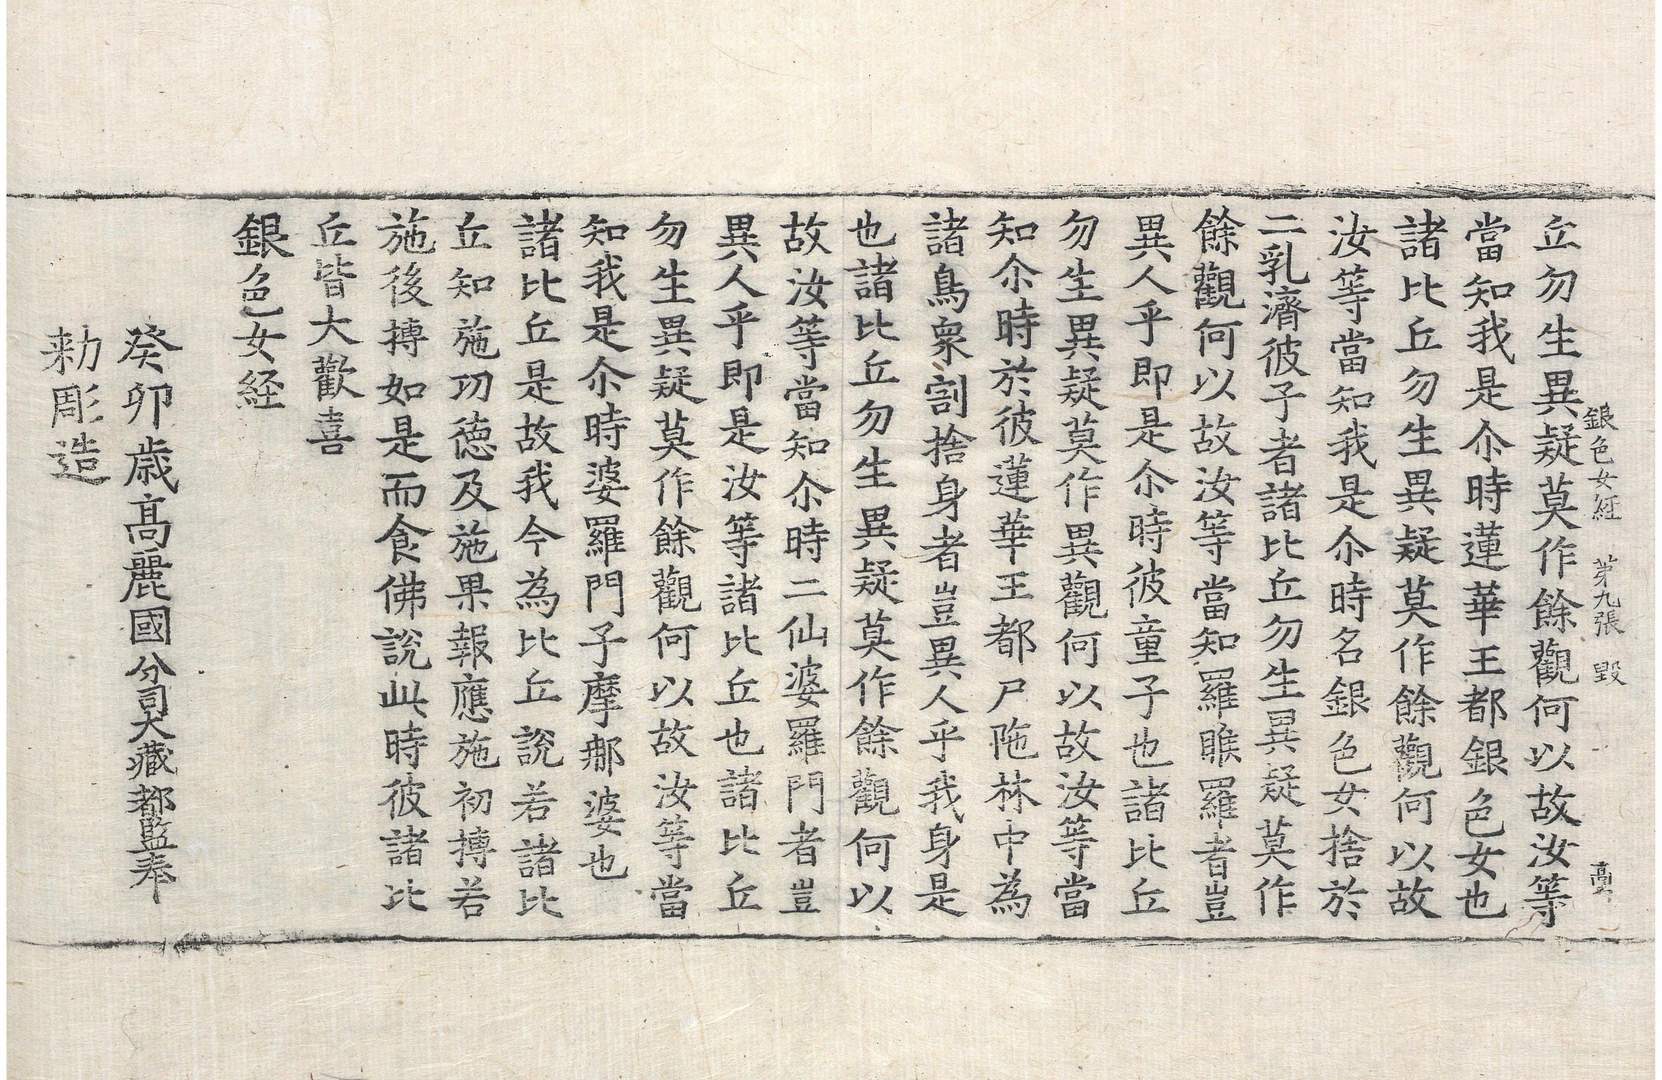 銀色女経 第九張 毀
丘勿生異疑莫作餘觀何以故汝等
當知我是尒時蓮華王都銀色女也
諸比丘勿生異疑莫作餘觀何以故
汝等當知我是尒時名銀色女捨於
二乳濟彼子者諸比丘勿生異疑莫作
餘觀何以故汝等當知羅睺羅者豈
異人乎即是尒時彼童子也諸比丘
勿生異疑莫作異觀何以故汝等當
知尒時於彼蓮華王都尸陁林中為
諸鳥衆割捨身者豈異人乎我身是
也諸比丘勿生異疑莫作餘觀何以
故汝等當知尒時二仙婆羅門者豈
異人乎即是汝等諸比丘也諸比丘
勿生異疑莫作餘觀何以故汝等當
知我是尒時婆羅門子摩那婆也
諸比丘是故我今為比丘說若諸比
丘知施功德及施果報應施初摶若
施後摶如是而食佛說此時彼諸比
丘皆大歡喜
銀色女経
癸卯歲高麗國分司大藏都監奉
勅彫造